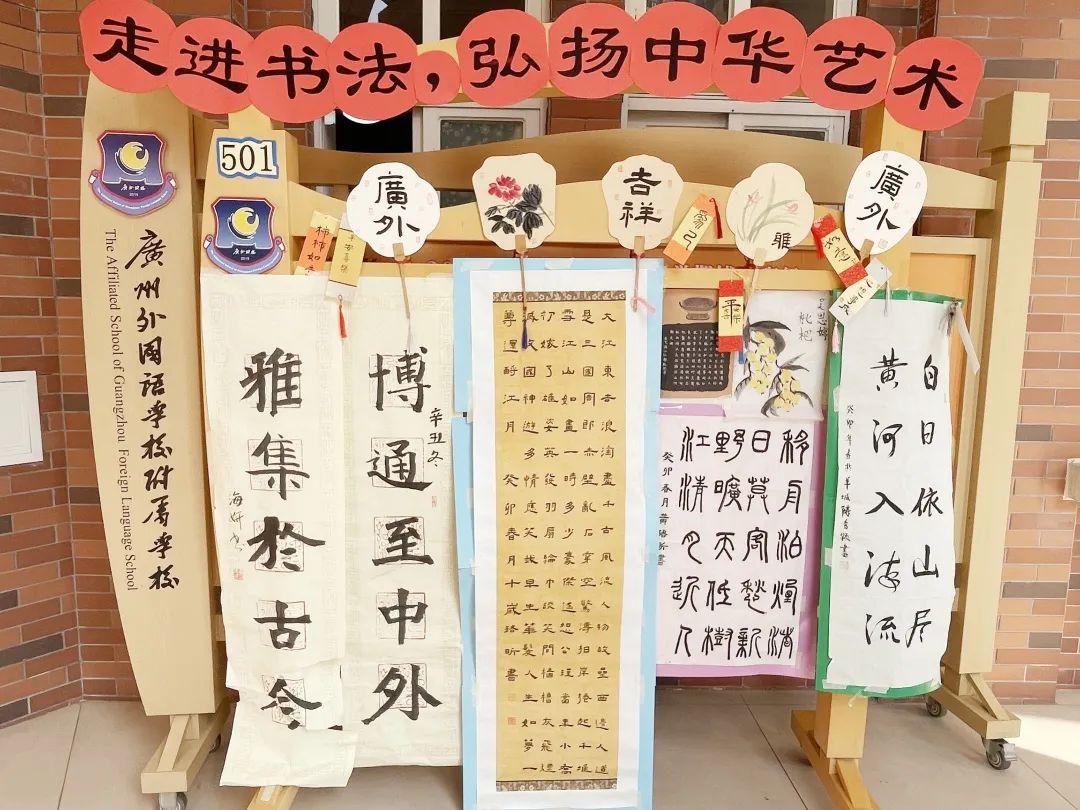 走进书法，弘扬中华艺术
廣州外國語學校附属學校
The Affiliated School of Guangzhou Foreign Language School
501
廣外
吉祥
雅
廣外
博通至中外
辛丑冬
雅集於古今
大江東去浪淘盡千古風流人物故壘西邊人道
是三國周郎赤壁亂石穿空驚濤拍岸捲起千堆
雪江山如畫一時多少豪傑遙想公瑾當年小喬
初嫁了雄姿英發羽扇綸巾談笑間檣櫓灰飛煙
滅故國神遊多情應笑我早生華髮人生如夢一
尊還酹江月 癸卯春月十歲珞昕書
枇杷
移舟泊煙渚
日莫客愁新
野曠天低樹
江清月近人
癸卯春月
白日依山尽
黄河入海流